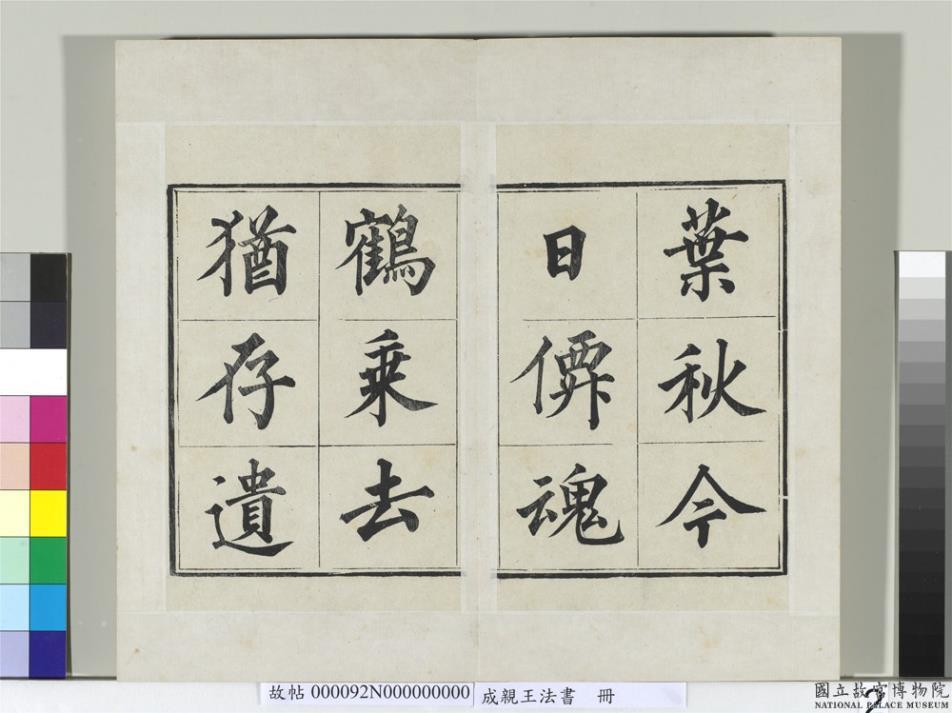 葉秋今
日僊魂
鶴乗去
猶存遺
故帖 000092N000000000 成親王法書 冊
國立故宮博物院
NATIONAL PALACE MUSEUM
2